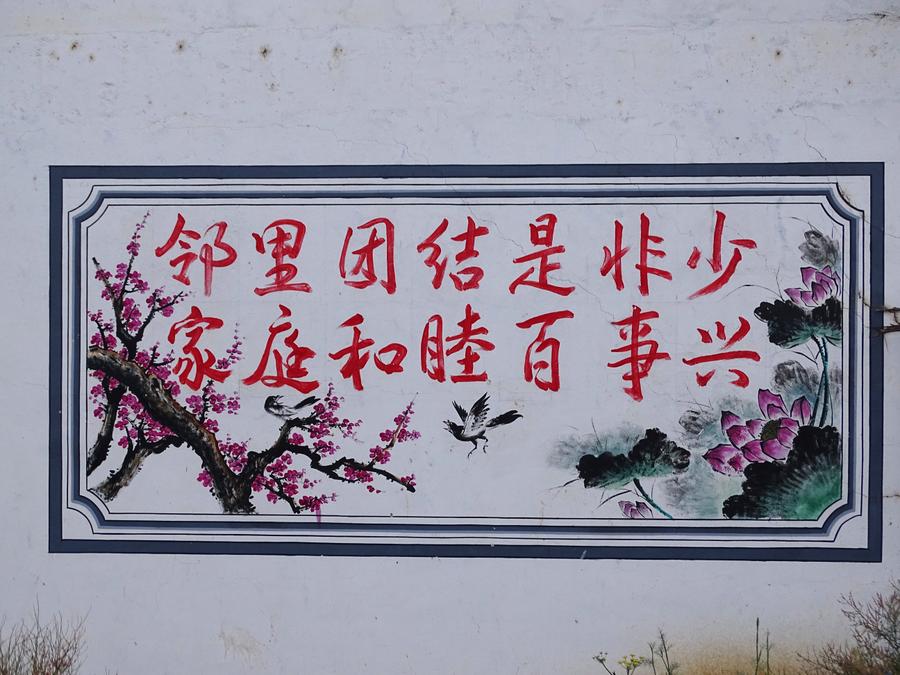 邻里团结是非少
家庭和睦百事兴